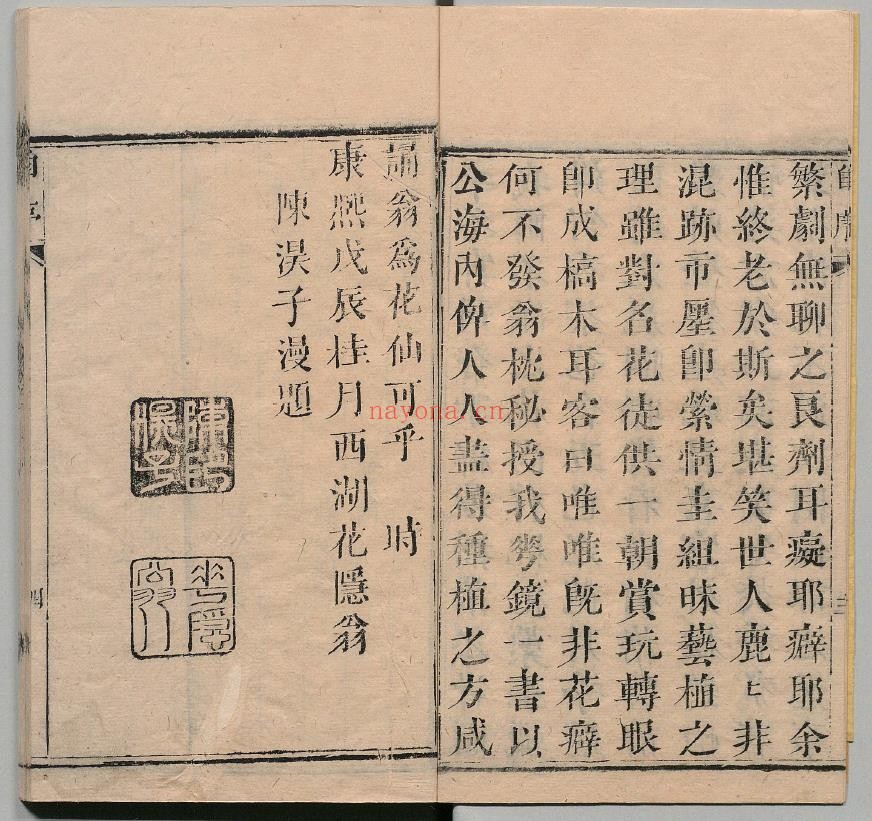 自序
繁劇無聊之良劑耳癡耶癖耶余
惟終老於斯矣堪笑世人鹿〻非
混跡市廛卽縈情圭組昧藝植之
理雖對名花徒供一朝賞玩轉眼
卽成槁木耳客曰唯唯旣非花癖
何不發翁枕秘授我花鏡一書以
公海內俾人人盡得種植之方咸
誦翁爲花仙可乎 時
康熙戊辰桂月西湖花隱翁
陳淏子漫題
花隱翁
nayona.cn